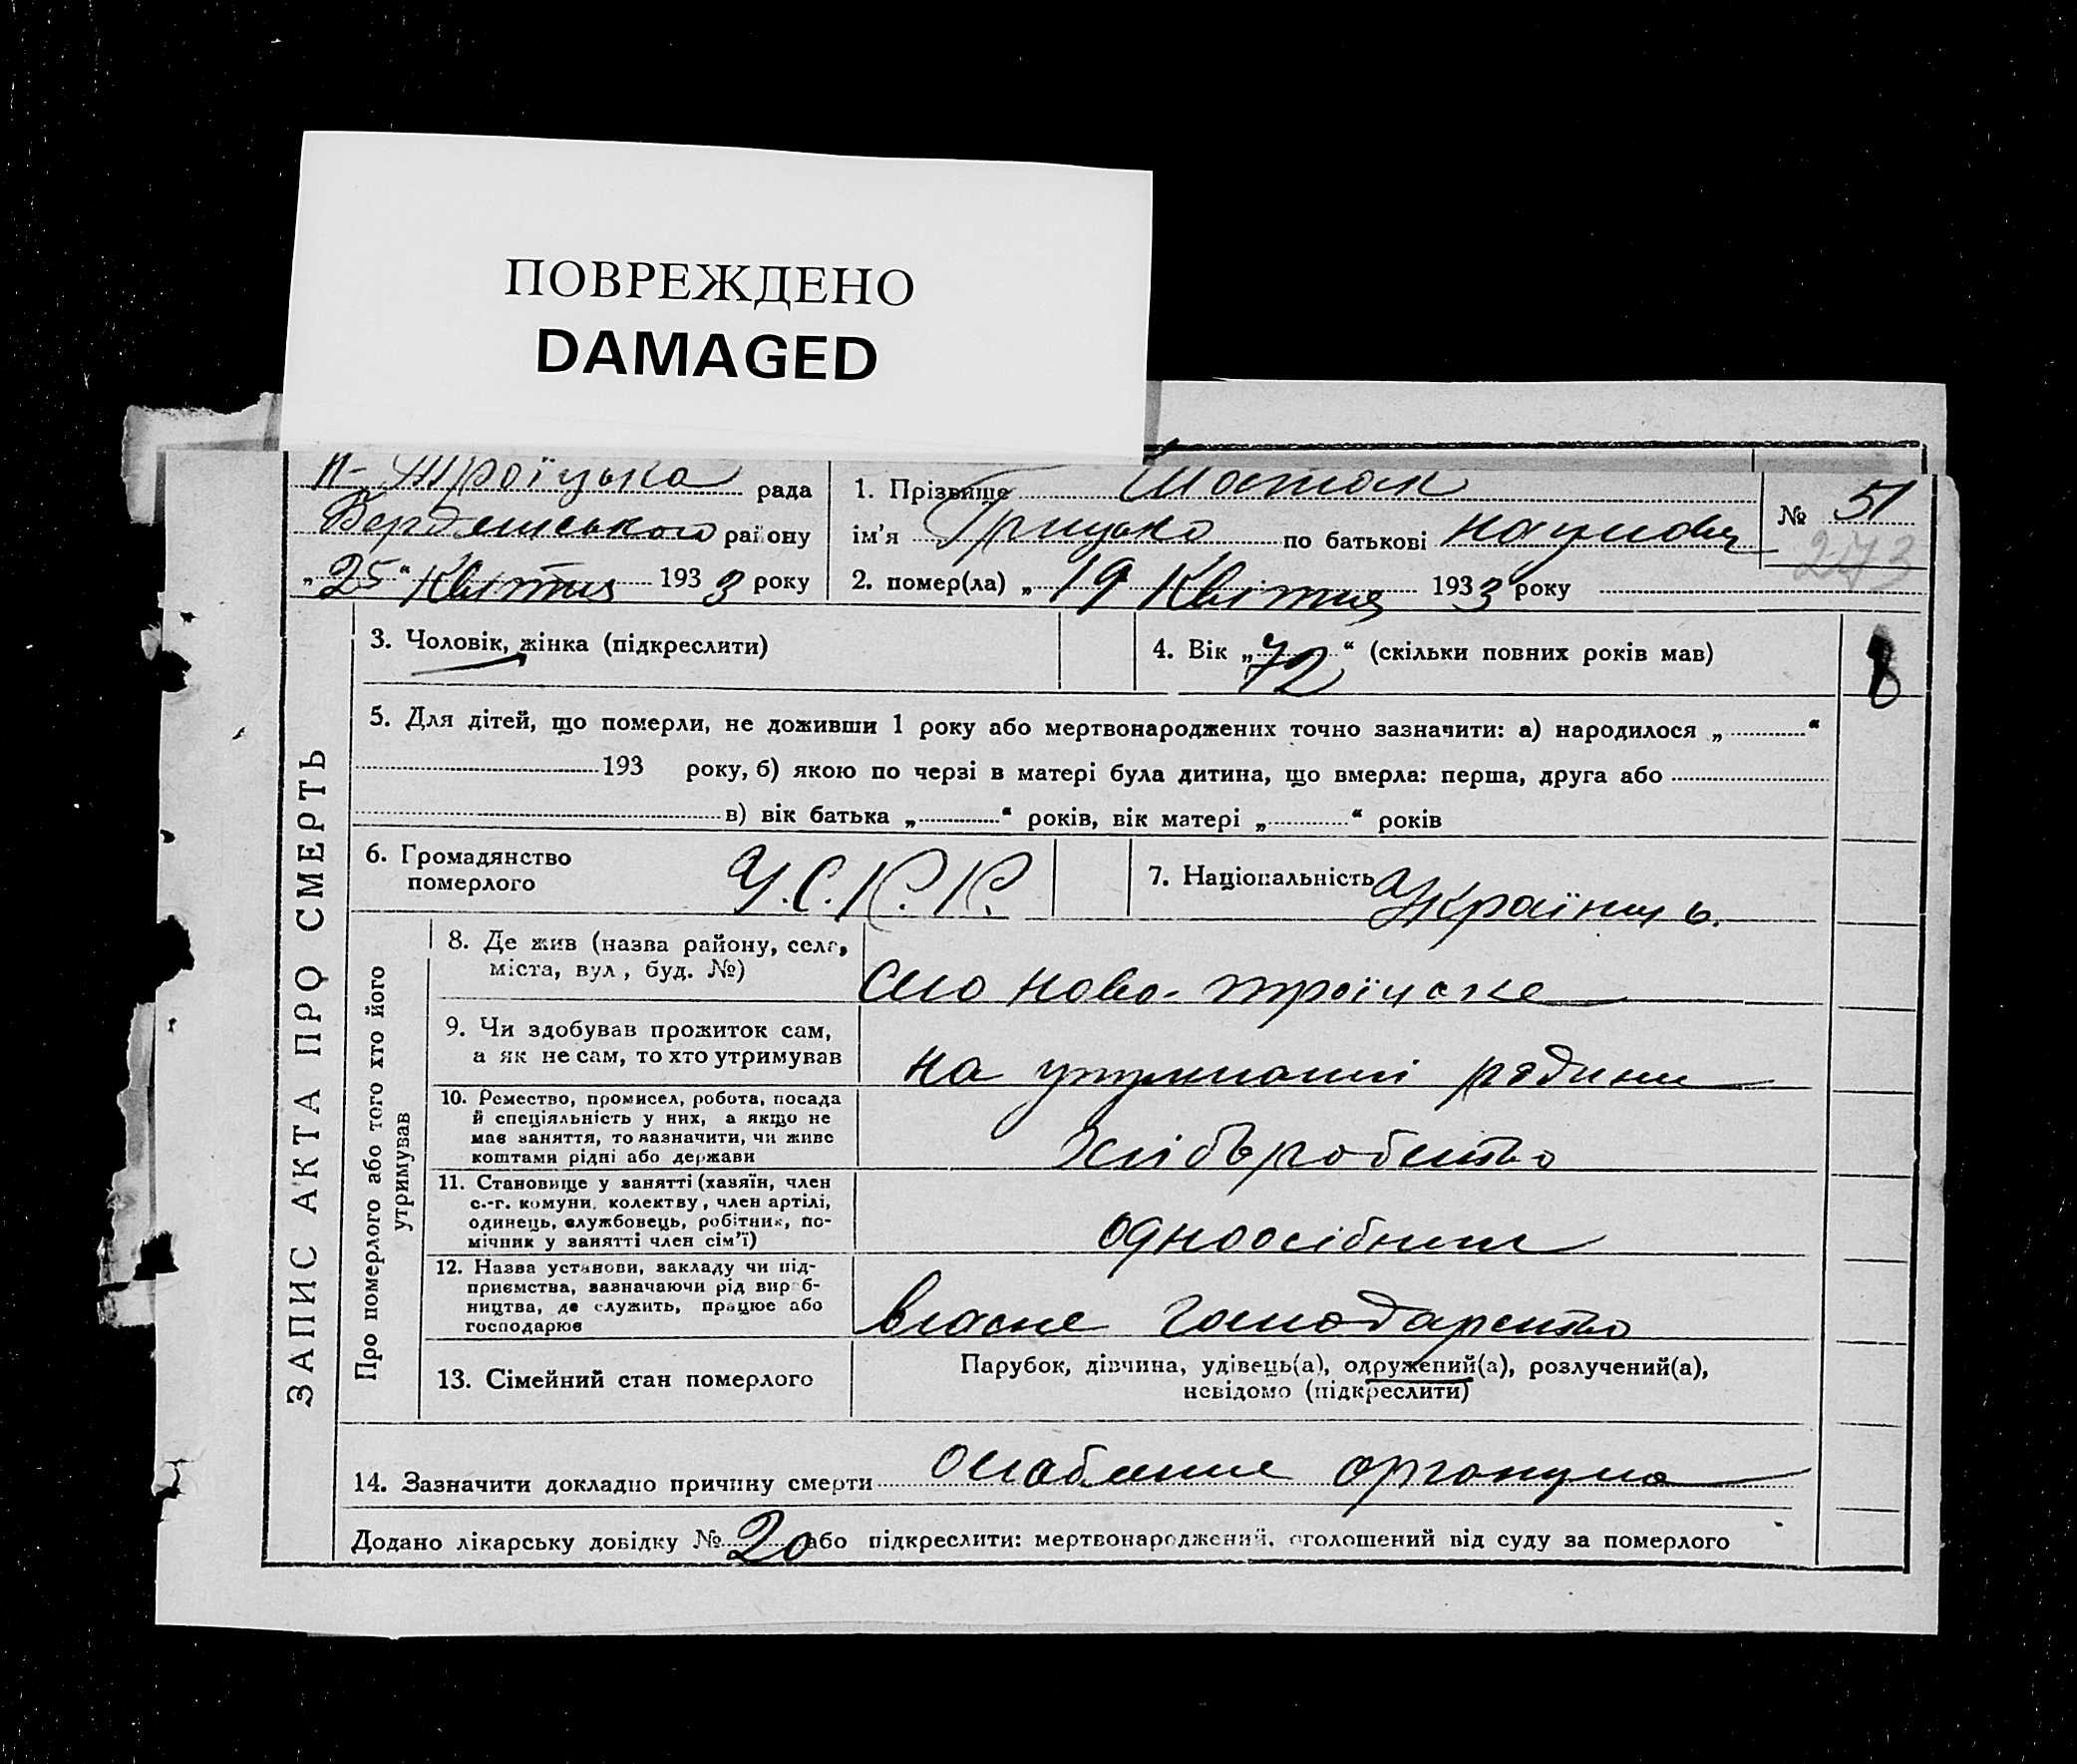 ПОВРЕЖДЕНО
DAMAGED
Н- Троїцька рада
Бердянського району
„25“ Квітня 1933 року
1. Прізвище Шостак
ім'я Грицько по батькові Наумович
2. помер(ла) „19 Квітня 1933 року
№ 51
273
ЗАПИС АКТА ПРО СМЕРТЬ
3. Чоловік, жінка (підкреслити)
4. Вік „72“ (скільки повних років мав)
5. Для дітей, що померли, не доживши 1 року або мертвонароджених точно зазначити: а) народилося „ “
193 року, б) якою по черзі в матері була дитина, що вмерла: перша, друга або
в) вік батька „ “ років, вік матері „ “ років
6. Громадянство
померлого
У.С.Р.Р.
7. Національність Українець.
Про померлого або того хто його
утримував
8. Де жив (назва району, села,
міста, вул, буд. №)
Село Ново-троїцьке
9. Чи здобував прожиток сам,
а як не сам, то хто утримував
на утриманні родини
10. Ремество, промисел, робота, посада
й спеціяльність у них, а якщо не
має заняття, то зазначити, чи живе
коштами рідні або держави
Хліборобство
11. Становище у занятті (хазяїн, член
с.-г. комуни, колективу, член артілі,
одинець, службовець, робітник, по-
мічник у занятті член сім'ї)
одноосібник
12. Назва установи, закладу чи під-
приємства, зазначаючи рід вироб-
ництва, де служить, працює або
господарює
власне господарство
13. Сімейний стан померлого
Парубок, дівчина, удівець(а), одружений(а), розлучений(а),
невідомо (підкреслити)
14. Зазначити докладно причину смерти ослаблення організма
Додано лікарську довідку № 20 або підкреслити: мертвонароджений, оголошений від суду за померлого